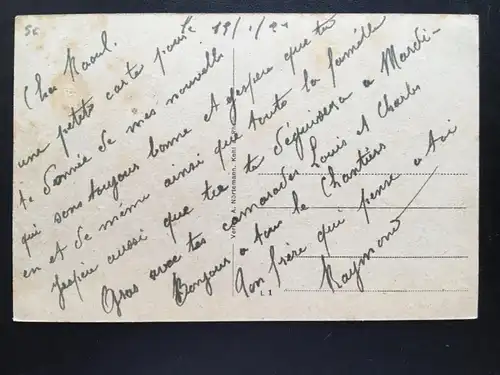 56
19/1/24
Cher Raoul.
une petite carte pour
te donnée de mes nouvelle
qui sons toujours bonne et j'espere que tu
en et de même ainsi que toute la famille
j'espere aussi que tu te déguisera a Mardi-
Gras avec tes camarades Louis et Charles
Bonjour a tous le Chantiers
Ton frère qui pense a toi
Raymond
Verlag A. Nörtemann, Kehl